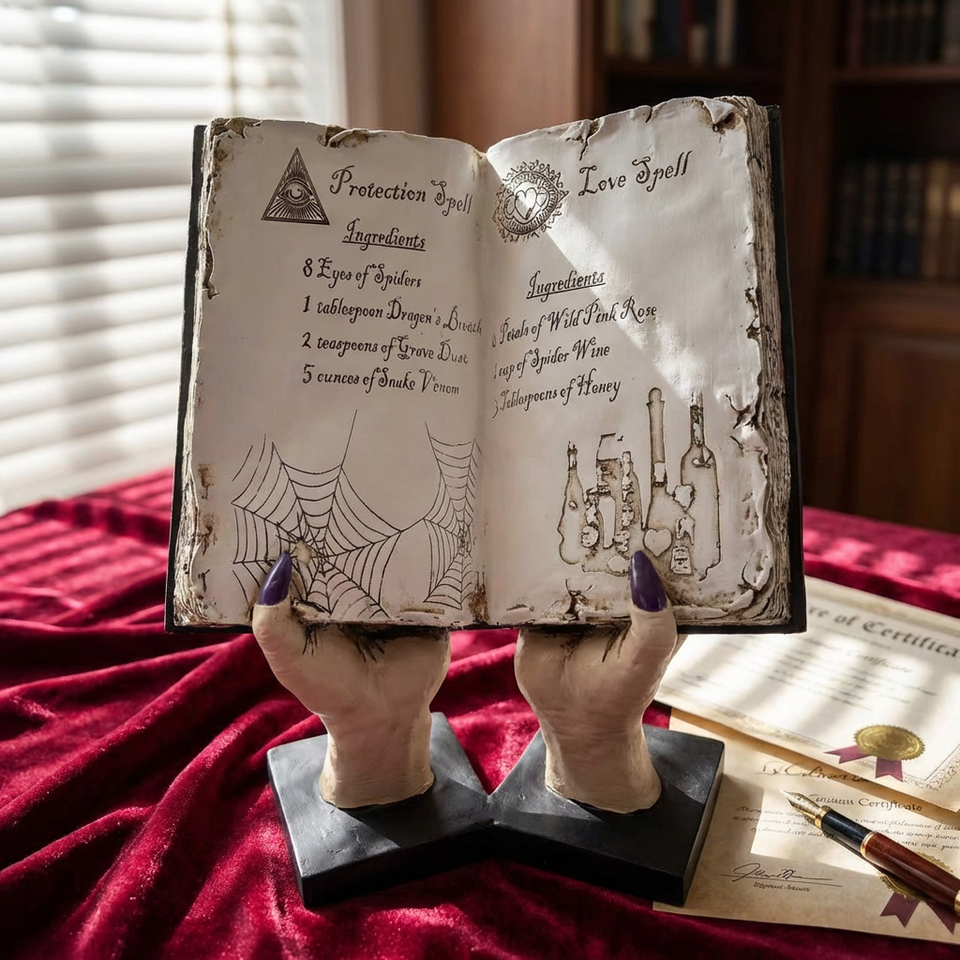 Protection Spell
Ingredients
8 Eyes of Spiders
1 tablespoon Dragen's
2 teaspoons of Grave Dust
5 ounces of Snake Venom
Love Spell
Ingredients
Petals of Wild Pink Rose
cup of Spider Wine
3 Tablespoons of Honey
of Certifica
Certificate
Certificate